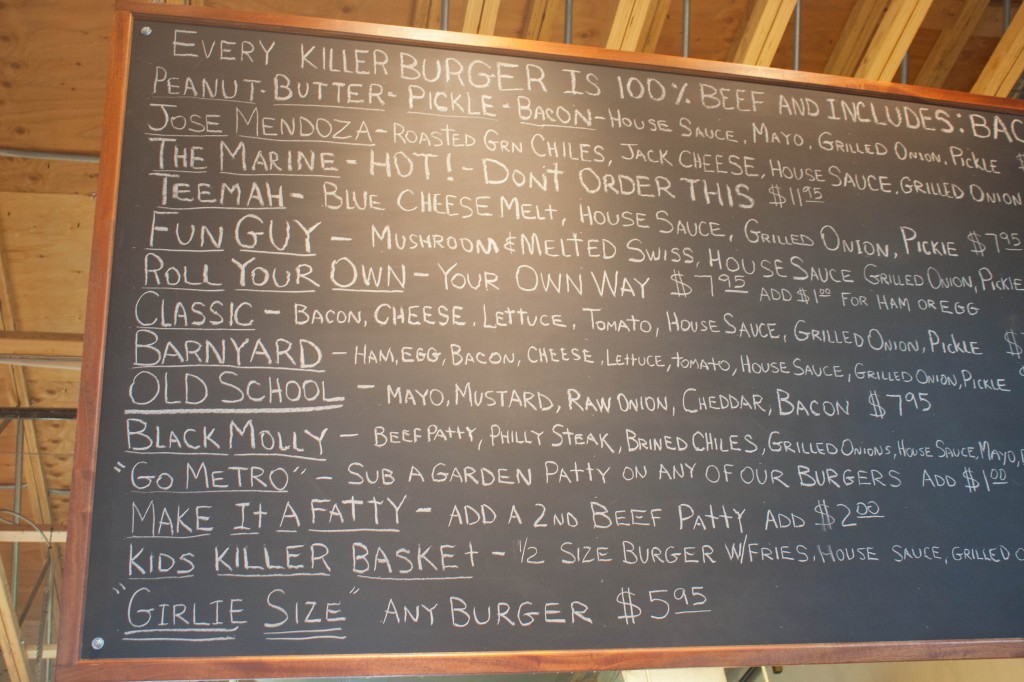 EVERY KILLER BURGER IS 100% BEEF AND INCLUDES: BAC
PEANUT-BUTTER-PICKLE-BACON-HOUSE SAUCE, MAYO, GRILLED ONION, PICKLE $
JOSE MENDOZA-ROASTED GRN CHILES, JACK CHEESE, HOUSE SAUCE, GRILLED ONION
THE MARINE - HOT! - DONT ORDER THIS $11.95
TEEMAH - BLUE CHEESE MELT, HOUSE SAUCE, GRILLED ONION, PICKLE $7.95
FUN GUY - MUSHROOM & MELTED SWISS, HOUSE SAUCE GRILLED ONION, PICKLE
ROLL YOUR OWN - YOUR OWN WAY $7.95 ADD $1.00 FOR HAM OR EGG
CLASSIC - BACON, CHEESE, LETTUCE, TOMATO, HOUSE SAUCE, GRILLED ONION, PICKLE $
BARNYARD - HAM, EGG, BACON, CHEESE, LETTUCE, TOMATO, HOUSE SAUCE, GRILLED ONION, PICKLE $
OLD SCHOOL - MAYO, MUSTARD, RAW ONION, CHEDDAR, BACON $7.95
BLACK MOLLY - BEEF PATTY, PHILLY STEAK, BRINED CHILES, GRILLED ONIONS, HOUSE SAUCE, MAYO,
"GO METRO" - SUB A GARDEN PATTY ON ANY OF OUR BURGERS ADD $1.00
MAKE IT A FATTY - ADD A 2ND BEEF PATTY ADD $2.00
KIDS KILLER BASKET - 1/2 SIZE BURGER W/FRIES, HOUSE SAUCE, GRILLED O
"GIRLIE SIZE" ANY BURGER $5.95